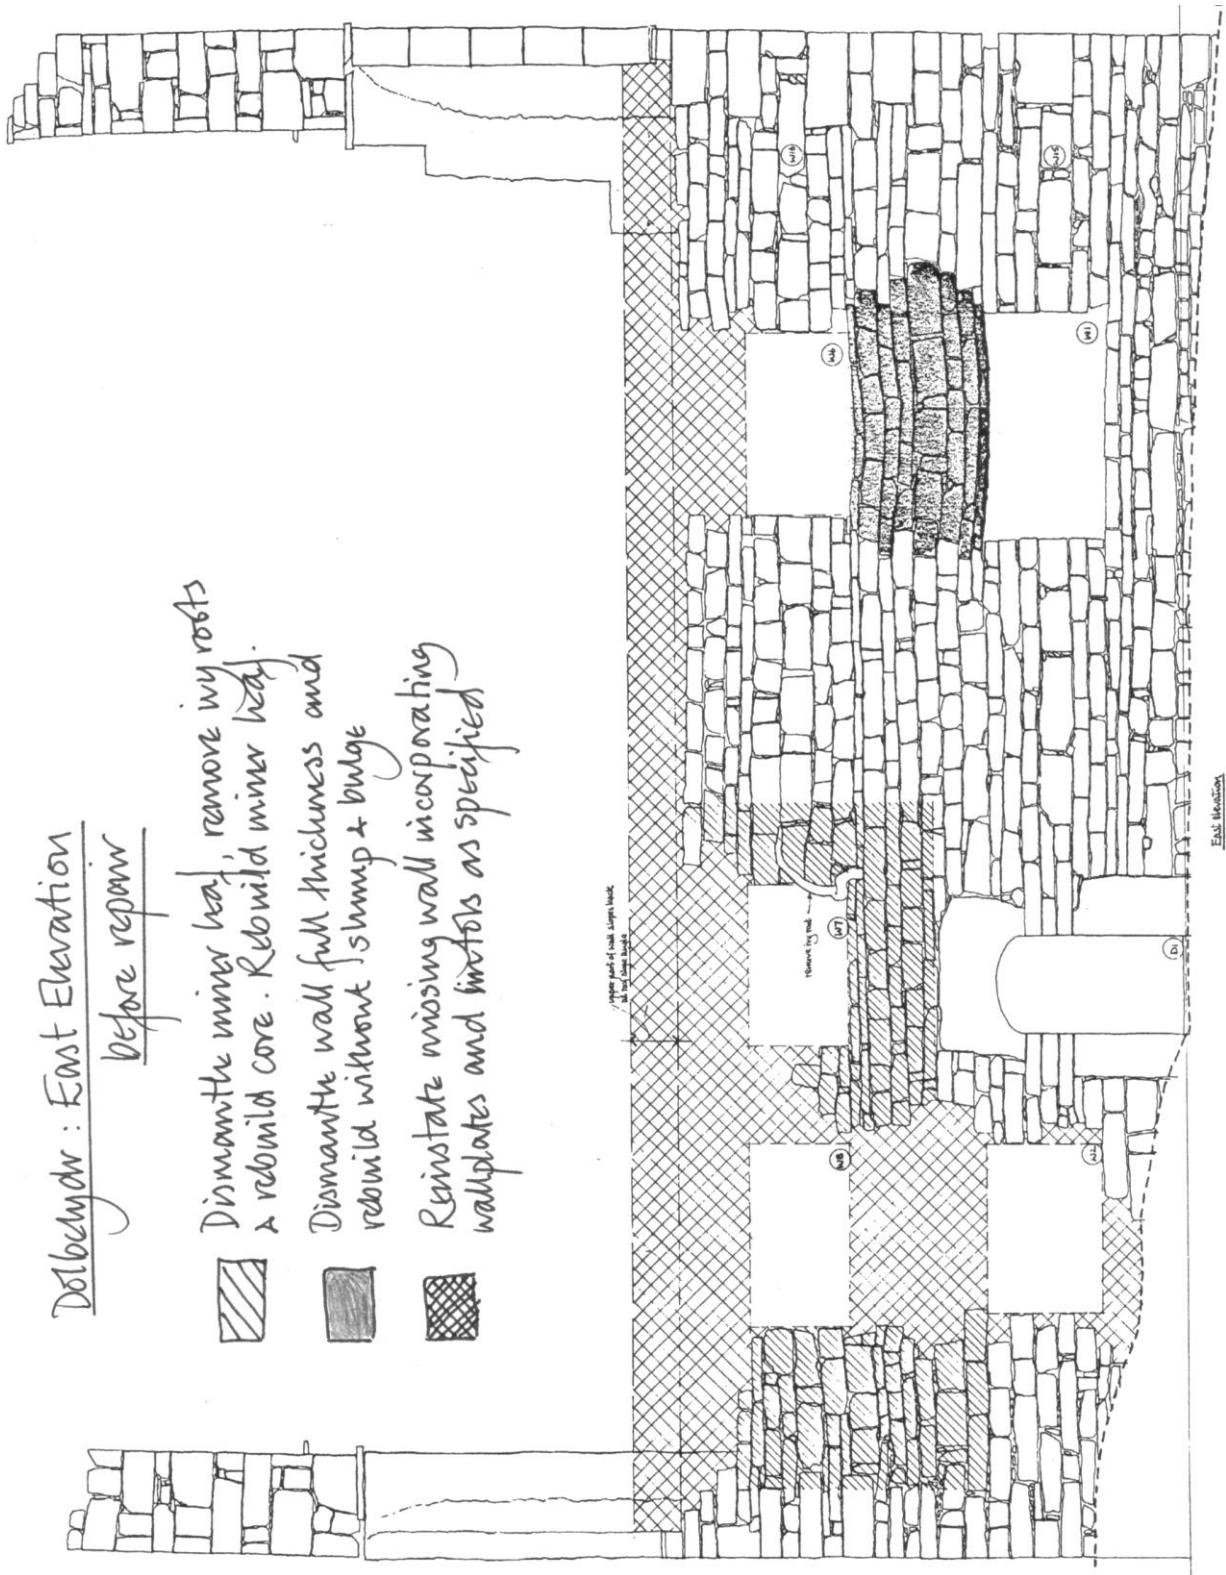 Dolbelydr : East Elevation
before repair
Dismantle inner leaf, remove ivy roots
& rebuild core. Rebuild inner leaf.
Dismantle wall full thickness and
rebuild without slump & bulge
Reinstate missing wall incorporating
wallplates and lintols as specified
upper part of wall slopes back
remove ivy root
W16
W15
W6
W1
W7
D1
W8
W2
East Elevation